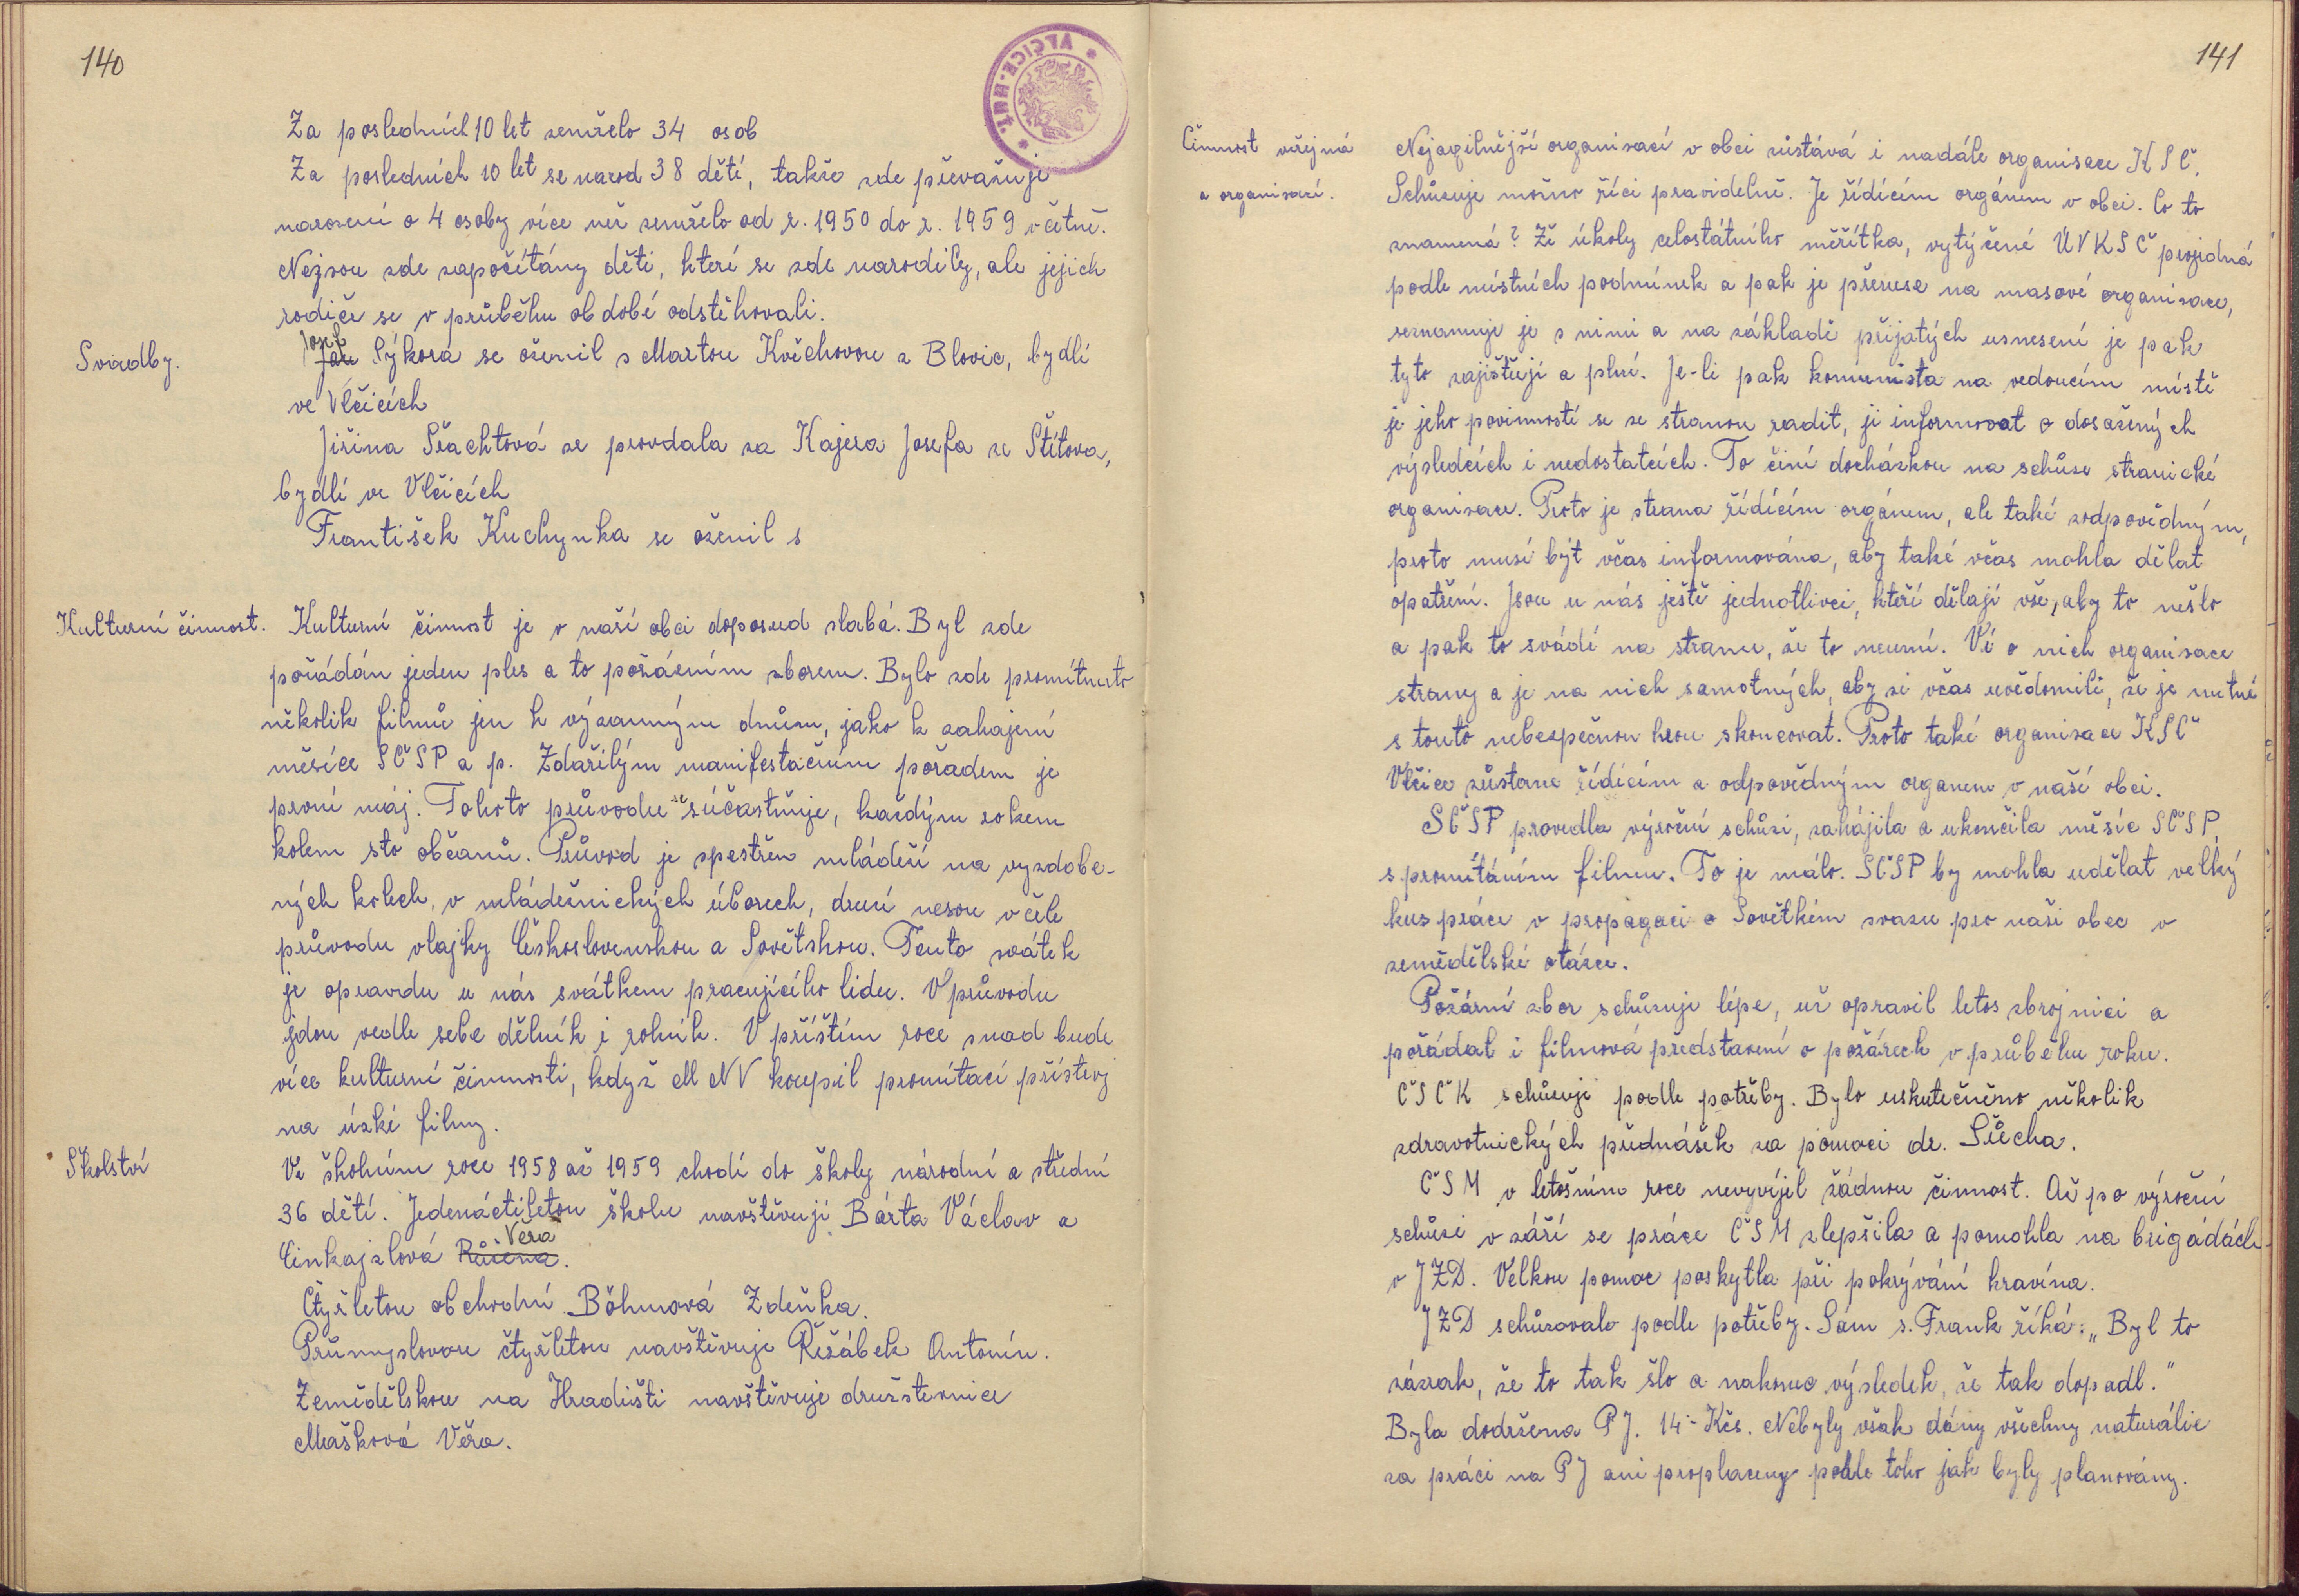 140
Za posledních 10 let zemřelo 34 osob
Za posledních 10 let se narod 38 dětí, takže zde převažuje
narození o 4 osoby více než zemřelo od r. 1950 do r. 1959 včetně.
Nejsou zde započítány děti, které se zde narodily, ale jejich
rodiče se v průběhu období odstěhovali.
Svadby.
Josef
Jan Sýkora se oženil s Martou Květhovou z Blovic, bydlí
ve Vlčicích
Jiřina Šlachtová se provdala za Kajera Josefa ze Štítova,
bydlí ve Vlčicích
František Kuchynka se oženil s
Kulturní činnost.
Kulturní činnost je v naší obci doposud slabá. Byl zde
pořádán jeden ples a to požárním sborem. Bylo zde promítnuto
několik filmů jen k význanným dnům, jako k zahajení
měsíce SČSP a p. Zdařilým manifestačním pořadem je
první máj. Tohoto průvodu se súčastňuje, každým rokem
kolem sto občanů. Průvod je zpestřen mládeží na vyzdobe-
ných kolech, v mládežnických úborech, druzí nesou v čele
průvodu vlajky Československou a Sovětskou. Tento svátek
je opravdu u nás svátkem pracujícího lidu. V průvodu
jdou vedle sebe dělník i rolník. V příštím roce snad bude
více kulturní činnosti, když MNV koupil promítací přístroj
na úzké filmy.
Školství
Ve školním roce 1958 až 1959 chodí do školy národní a střední
36 dětí. Jedenáctiletou školu navštěvují Bárta Václav a
Věra
Cinkajzlová Růžena.
Čtyřletou obchodní Böhmová Zdeňka.
Průmyslovou čtyřletou navštěvuje Řežábek Antonín.
Zemědělskou na Hradišti navštěvuje družstevnice
Mašková Věra.
141
Činnost veřejná
a organisací.
Nejagilnější organisací v obci zůstává i nadále organisace KSČ.
Schůzuje možno říci pravidelně. Je řídícím orgánem v obci. Co to
znamená? Že úkoly celostátního měřítka, vytýčené ÚVKSČ projedná
podle místních podmínek a pak je přenese na masové organisace,
seznamuje je s nimi a na základě přijatých usnesení je pak
tyto zajišťují a plní. Je-li pak komunista na vedoucím místě
je jeho povinností se se stranou radit, ji informovat o dosažených
výsledcích i nedostatcích. To činí docházkou na schůze stranické
organisace. Proto je strana řídícím orgánem, ale také zodpovědným,
proto musí být včas informována, aby také včas mohla dělat
opatření. Jsou u nás ještě jednotlivci, kteří dělají vše, aby to nešlo
a pak to svádí na stranu, že to neumí. Ví o nich organisace
strany a je na nich samotných, aby si včas uvědomili, že je nutné
s touto nebezpečnou hrou skoncovat. Proto také organisace KSČ
Vlčice zůstane řídícím a odpovědným organem v naší obci.
SČSP provedla výroční schůzi, zahájila a ukončila měsíc SČSP,
s promítáním filmu. To je málo. SČSP by mohla udělat velký
kus práce v propagaci o Sovětkém svazu pro naši obec v
zemědělské otázce.
Požární sbor schůzuje lépe, už opravil letos zbrojnici a
pořádal i filmová predstavení o požárech v průběhu roku.
ČSČK schůzuje podle potřeby. Bylo uskutečněno několik
zdravotnických přednášek za pomoci dr. Šlecha.
ČSM v letošním roce nevyvíjel žádnou činnost. Až po výroční
schůzi v září se práce ČSM zlepšila a pomohla na brigádách
v JZD. Velkou pomoc poskytla při pokrývání kravína.
JZD schůzovalo podle potřeby. Sám s. Frank říká: „Byl to
zázrak, že to tak šlo a nakonec výsledek, že tak dopadl."
Byla dodržena PJ. 14- Kčs. Nebyly však dány všechny naturálie
za práci na PJ ani proplaceny podle toho jak byly planovány.